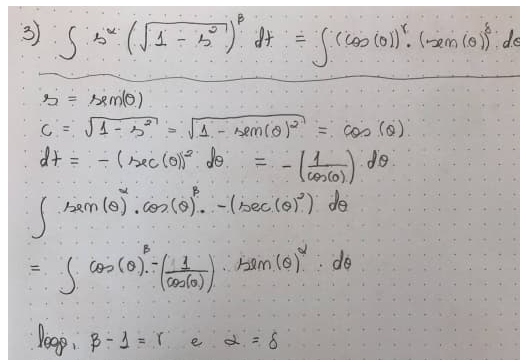 3) ∫ s^α (√(1 - s²))^β dt = ∫ (cos(θ))^γ . (sen(θ))^δ dθ
s = sen(θ)
c = √(1 - s²) = √(1 - sen(θ)²) = cos(θ)
dt = -(sec(θ))² dθ = -(1/cos(θ)) dθ
∫ sen(θ)^α . cos(θ)^β . -(sec(θ)²) dθ
= ∫ cos(θ)^β . -(1/cos(θ)) . sen(θ)^α . dθ
logo, β - 1 = γ e α = δ